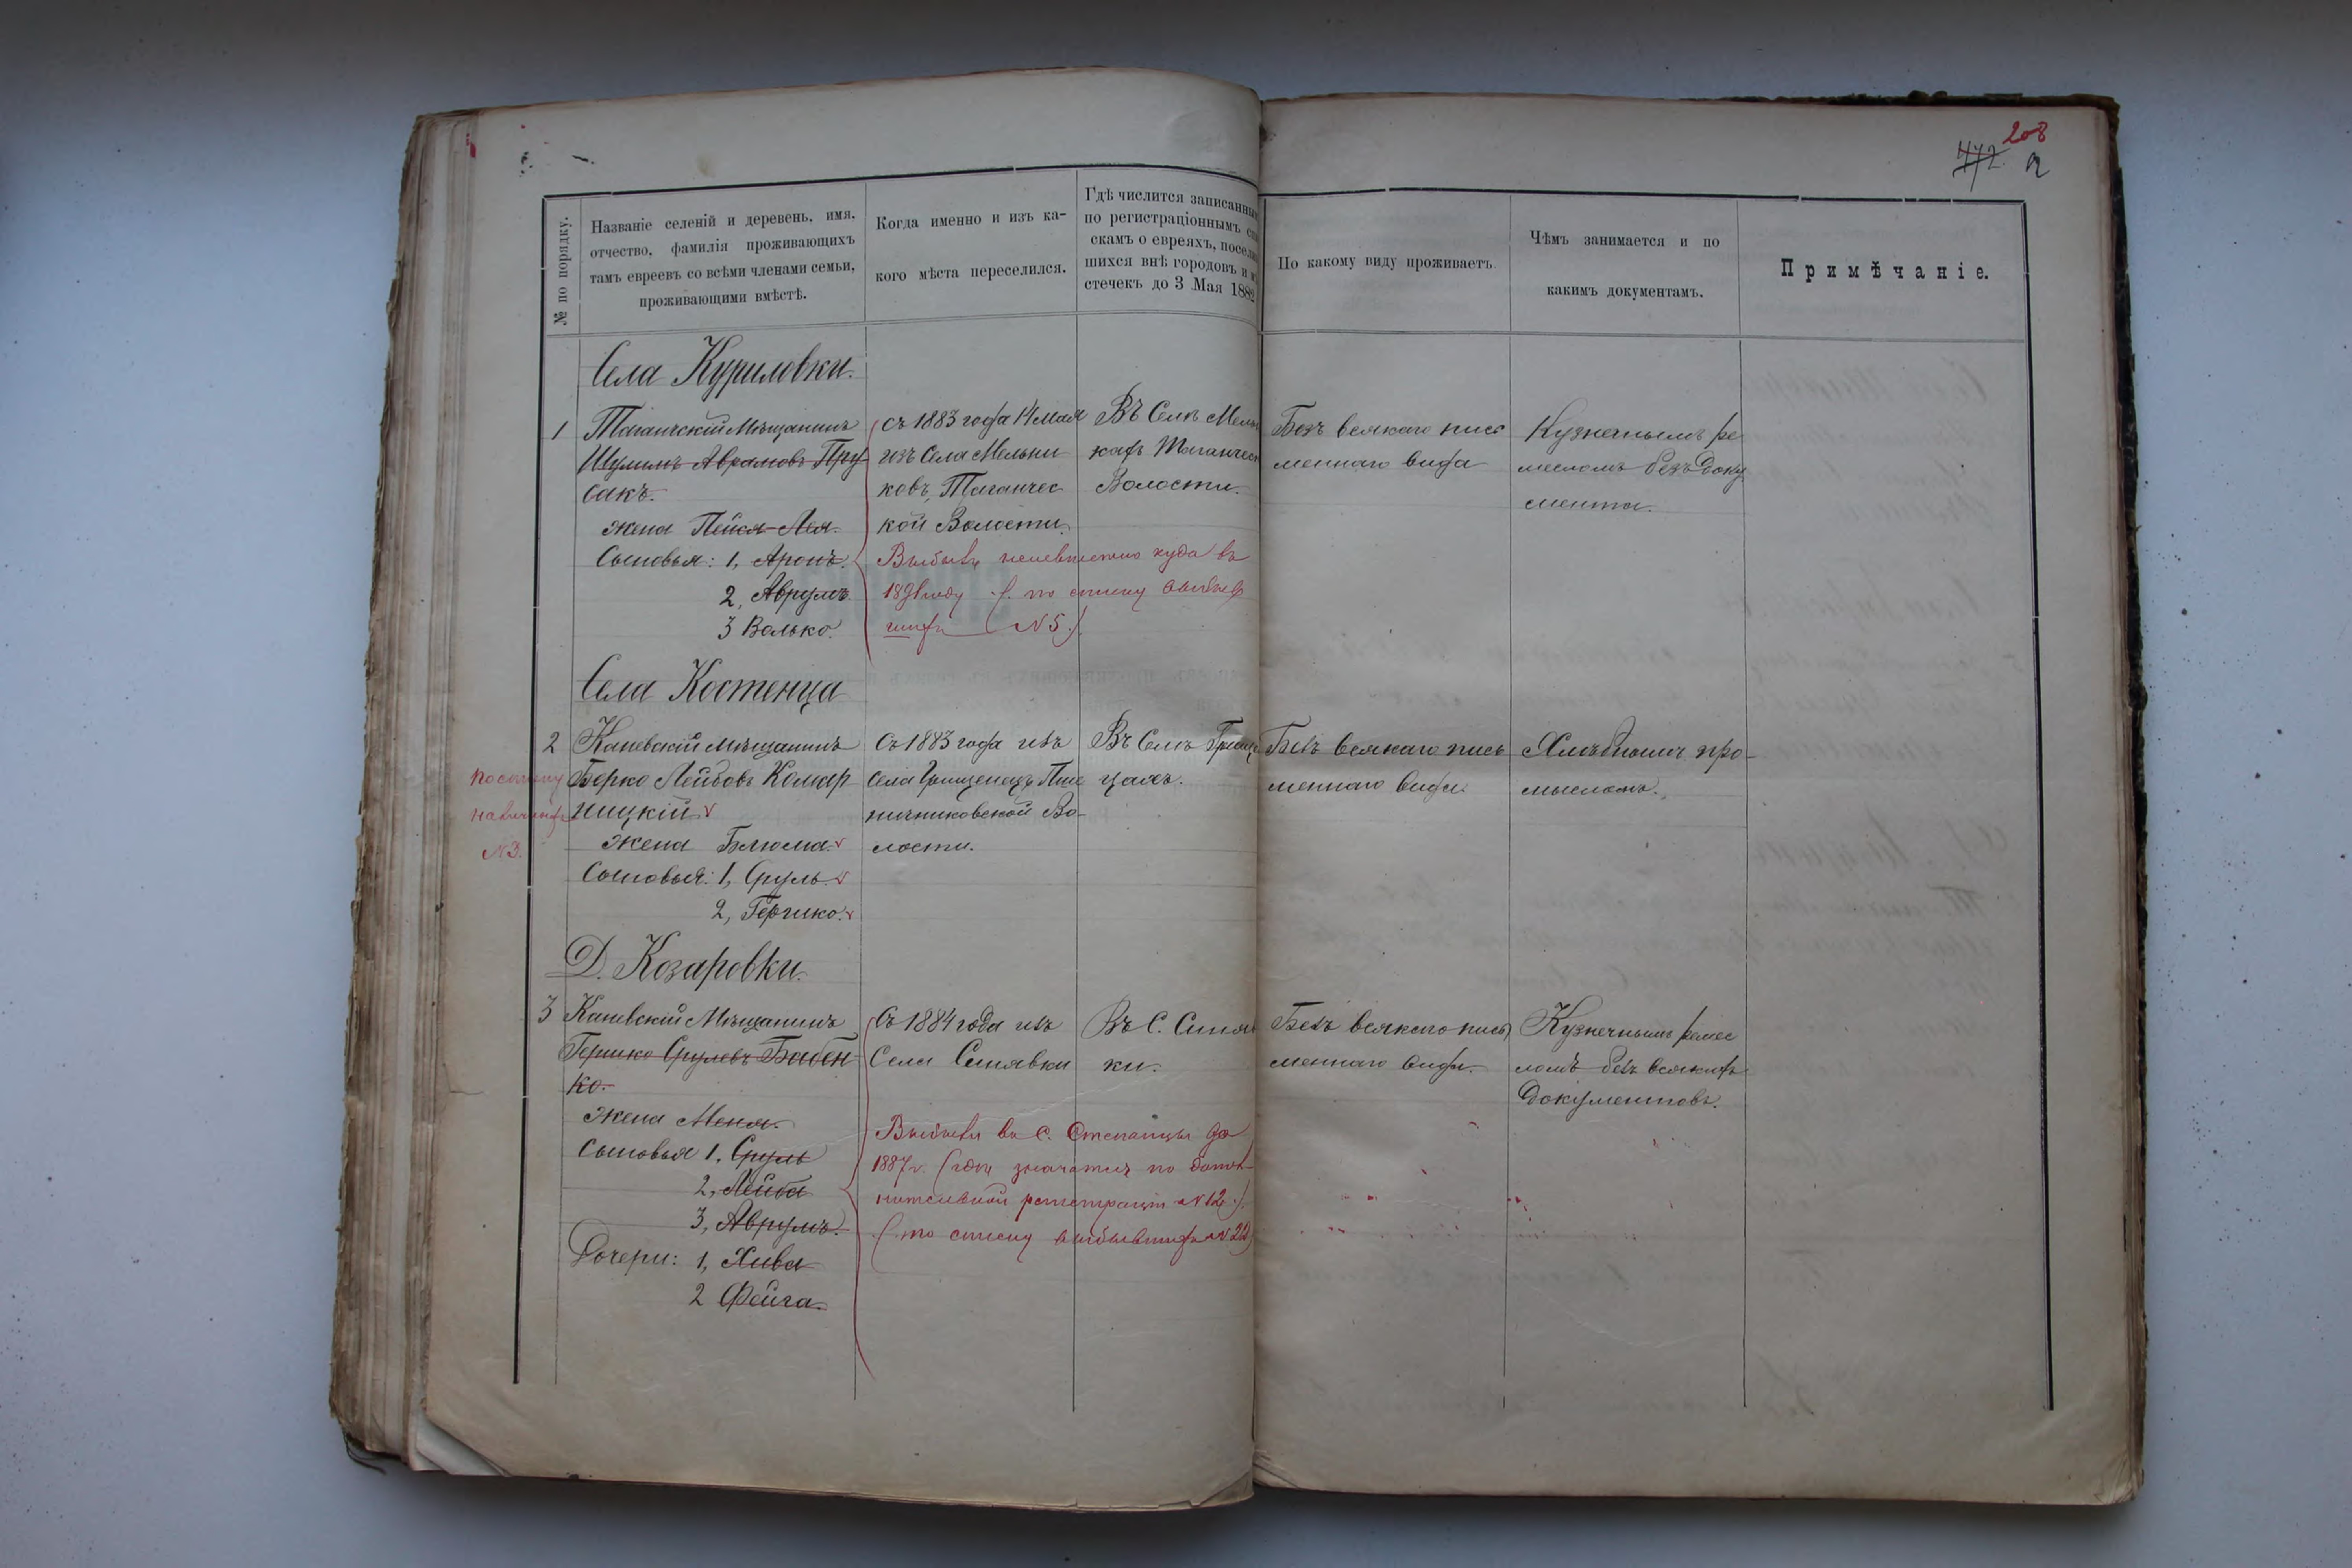 208
472. 2
№ по порядку.
Названіе селеній и деревень, имя,
отчество, фамилія проживающихъ
тамъ евреевъ со всѣми членами семьи,
проживающими вмѣстѣ.
Когда именно и изъ ка-
кого мѣста переселился.
Гдѣ числится записанным
по регистраціоннымъ спи
скамъ о евреяхъ, посели
шихся внѣ городовъ и м
стечекъ до 3 Мая 1882
По какому виду проживаетъ
Чѣмъ занимается и по
какимъ документамъ.
Примѣчаніе.
Села Куриловки.
1
Таганчскій Мѣщанинъ
Шулимъ Аврамовъ Пру-
сакъ.
жена Пейся-Лея.
Сыновья: 1, Аронъ.
2, Аврумъ.
3 Волько.
съ 1883 года 14 Мая
изъ Села Мельни
ковъ, Таганчес
кой Волости.
Выбывъ неизвѣстно куда въ
году (. по списку выбыв
шихъ (N 5.)
Въ Селѣ Мельн
кахъ Таганческ
Волости.
Безъ всякаго пись
меннаго вида
Кузнечнымъ ре
месломъ безъ Доку
мента.
Села Костенца
2
Каневскій мѣщанинъ
Берко Лейбовъ Комар
ницкій v
жена Блюма. v
Сыновья: 1, Сруль. v
2, Гершко. v
по списку
наличныхъ
N 3.
Съ 1883 года изъ
Села Грищенецъ Пше
ничниковской Во-
лости.
Въ Селѣ Грище
цахъ.
Безъ всякаго пись
меннаго вида.
Хлѣбнымъ про-
мысломъ.
Д. Козаровки.
3
Каневскій Мѣщанинъ
Гершко Срулевъ Бабен-
ко.
жена Меня.
Сыновья 1, Сруль
2, Лейба
3, Аврумъ.
Дочери: 1, Хива
2 Фейга.
Съ 1884 года изъ
Села Синявки
Выбыли въ с. Степанцы до
1887 г. (гдѣ значатся по допол-
нительной регистраціи N 12.)
(. по списку выбывшихъ N 22)
Въ С. Синяв
ки.
Безъ всякаго пись
меннаго вида.
Кузнечнымъ ремес
ломъ безъ всякихъ
Документовъ.